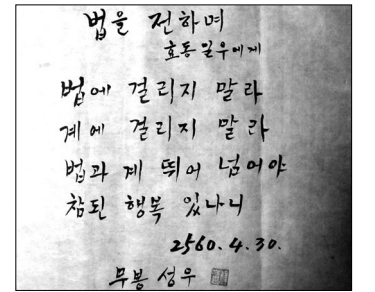 법을 전하며
호동 일우에게
법에 걸리지 말라
계에 걸리지 말라
법과 계 뛰어 넘어야
참된 행복 있나니
2560.4.30.
무봉 성우